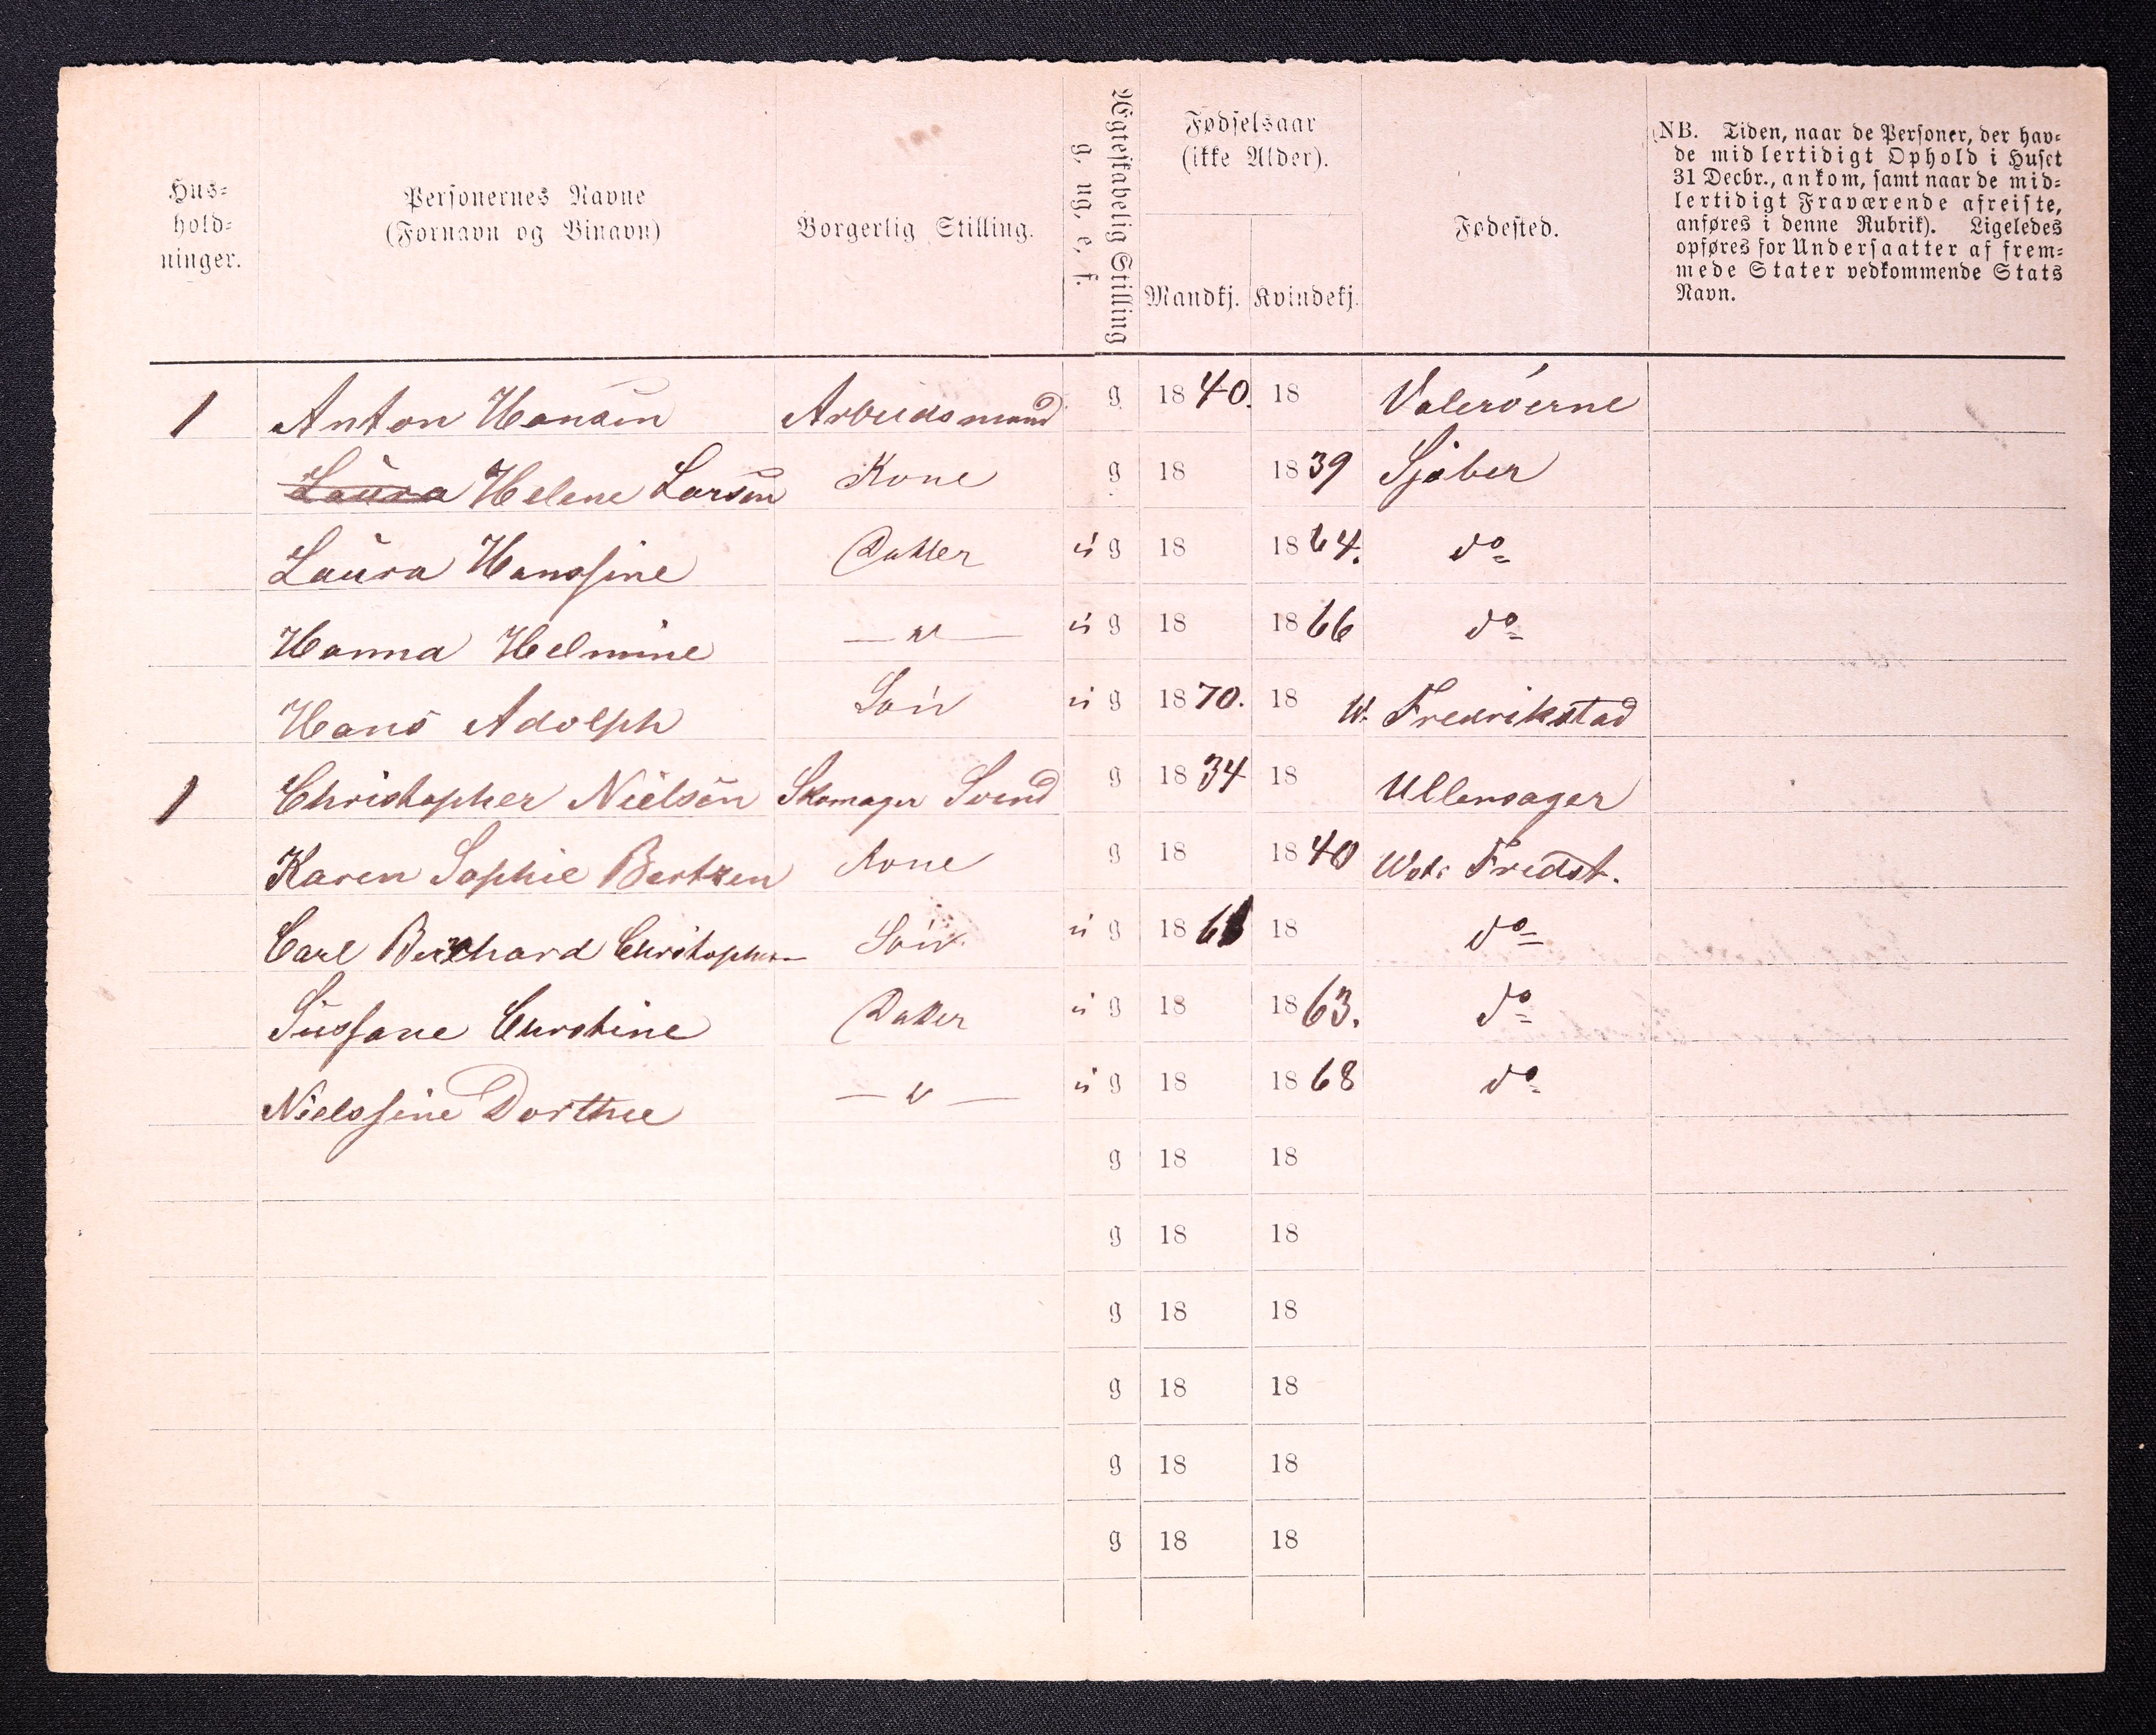 Hus-
hold-
ninger.
Personernes Navne
(Fornavn og Binavn)
Borgerlig Stilling.
Ægteskabelig Stilling
g, ug, e, f.
Fødselsaar
(ikke Alder).
Mandkj. Kvindekj.
Fødested.
(NB. Tiden, naar de Personer, der hav-
de midlertidigt Ophold i Huset
31 Decbr., ankom, samt naar de mid-
lertidigt Fraværende afreiste,
anføres i denne Rubrik). Ligeledes
opføres for Undersaatter af frem-
mede Stater vedkommende Stats
Navn.
1 Anton Hansen Arbeidsmand g 1840. 18 Valerøerne
Laura Helene Larsen Kone g 18 1839 Sjøber
Laura Hanssine Datter ug 18 1864. do
Hanna Helmine —"— ug 18 1866 do
Hans Adolph Søn ug 1870. 18 W. Fredrikstad
1 Christopher Nielsen Skomager Svend g 1834 18 Ullensager
Karen Sophie Bertzen Kone g 18 1840 Wstr Fredst.
Carl Bernhard Christophersen Søn ug 1861 18 do
Sussane Christine Datter ug 18 1863. do
Nielssine Dorthee —"— ug 18 1868 do
g 18 18
g 18 18
g 18 18
g 18 18
g 18 18
g 18 18